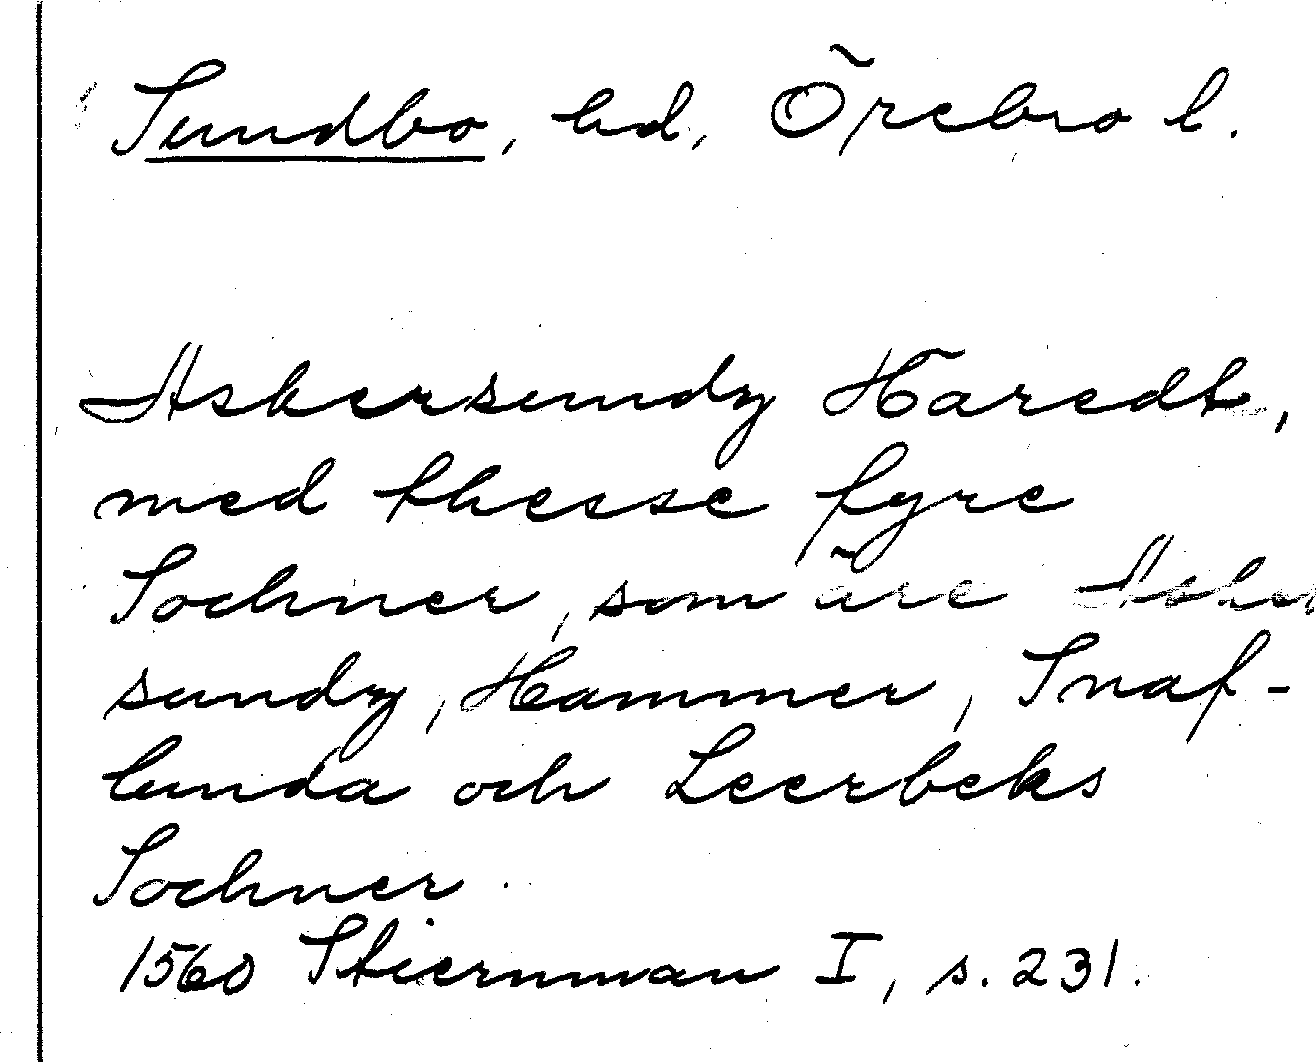 Sundbo, hd, Örebro l.
Askersundz Häredt,
med thesse fyre
Sochner, som äre Asker
sundz, Hammer, Snaf-
lunda och Leerbeks
Sochner.
1560 Stiernman I, s. 231.